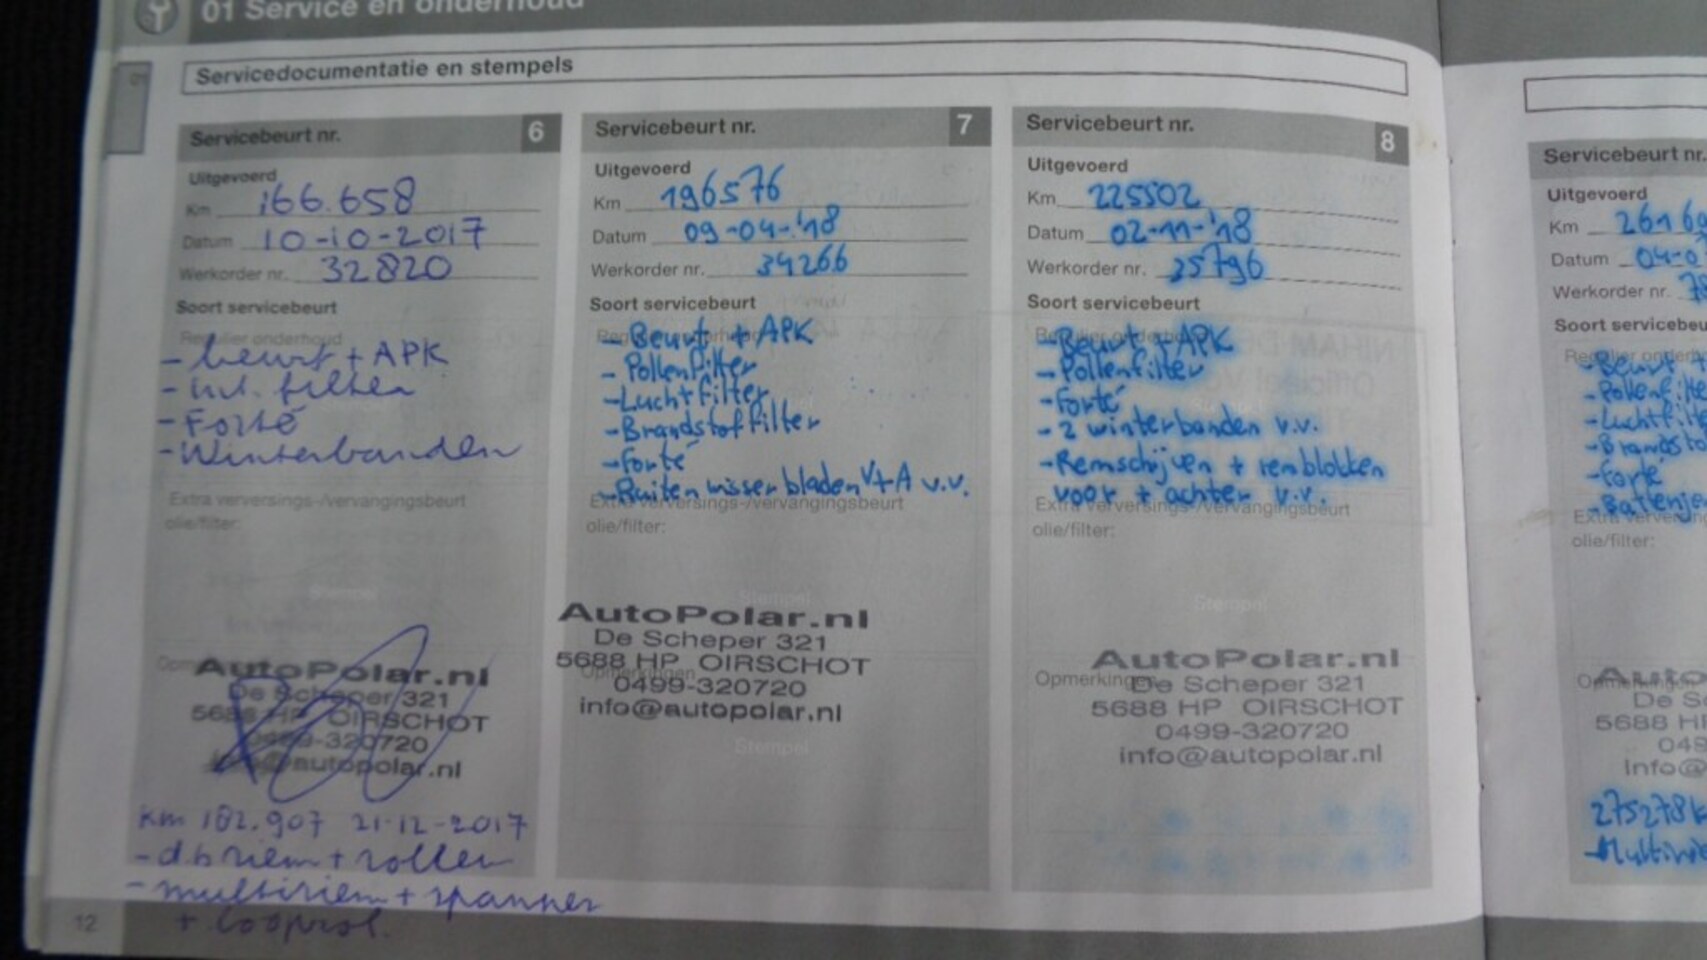 01 Service en onderhoud
01
Servicedocumentatie en stempels
Servicebeurt nr. 6
Uitgevoerd
Km 166.658
Datum 10-10-2017
Werkorder nr. 32820
Soort servicebeurt
Regulier onderhoud
- beurt + APK
- int. filter
- Forté
- Winterbanden
Extra verversings-/vervangingsbeurt
olie/filter:
Stempel
AutoPolar.nl
De Scheper 321
5688 HP OIRSCHOT
0499-320720
info@autopolar.nl
km 182.907 21-12-2017
- d.b riem + rollen
- multiriem + spanner
+ looprol.
12
Servicebeurt nr. 7
Uitgevoerd
Km 196576
Datum 09-04-'18
Werkorder nr. 34266
Soort servicebeurt
- Beurt + APK
- Pollenfilter
- Luchtfilter
- Brandstoffilter
- Forté
- Ruitenwisserbladen V+A v.v.
Extra verversings-/vervangingsbeurt
olie/filter:
Stempel
AutoPolar.nl
De Scheper 321
5688 HP OIRSCHOT
Opmerkingen
0499-320720
info@autopolar.nl
Stempel
Servicebeurt nr. 8
Uitgevoerd
Km 225502
Datum 02-11-'18
Werkorder nr. 35796
Soort servicebeurt
Regulier onderhoud
- Beurt + APK
- Pollenfilter
- Forté
- 2 winterbanden v.v.
- Remschijven + remblokken
voor + achter v.v.
Extra verversings-/vervangingsbeurt
olie/filter:
Stempel
AutoPolar.nl
Opmerkingen
De Scheper 321
5688 HP OIRSCHOT
0499-320720
info@autopolar.nl
Servicebeurt nr.
Uitgevoerd
Km
Datum
Werkorder nr.
- Forté
olie/filter: